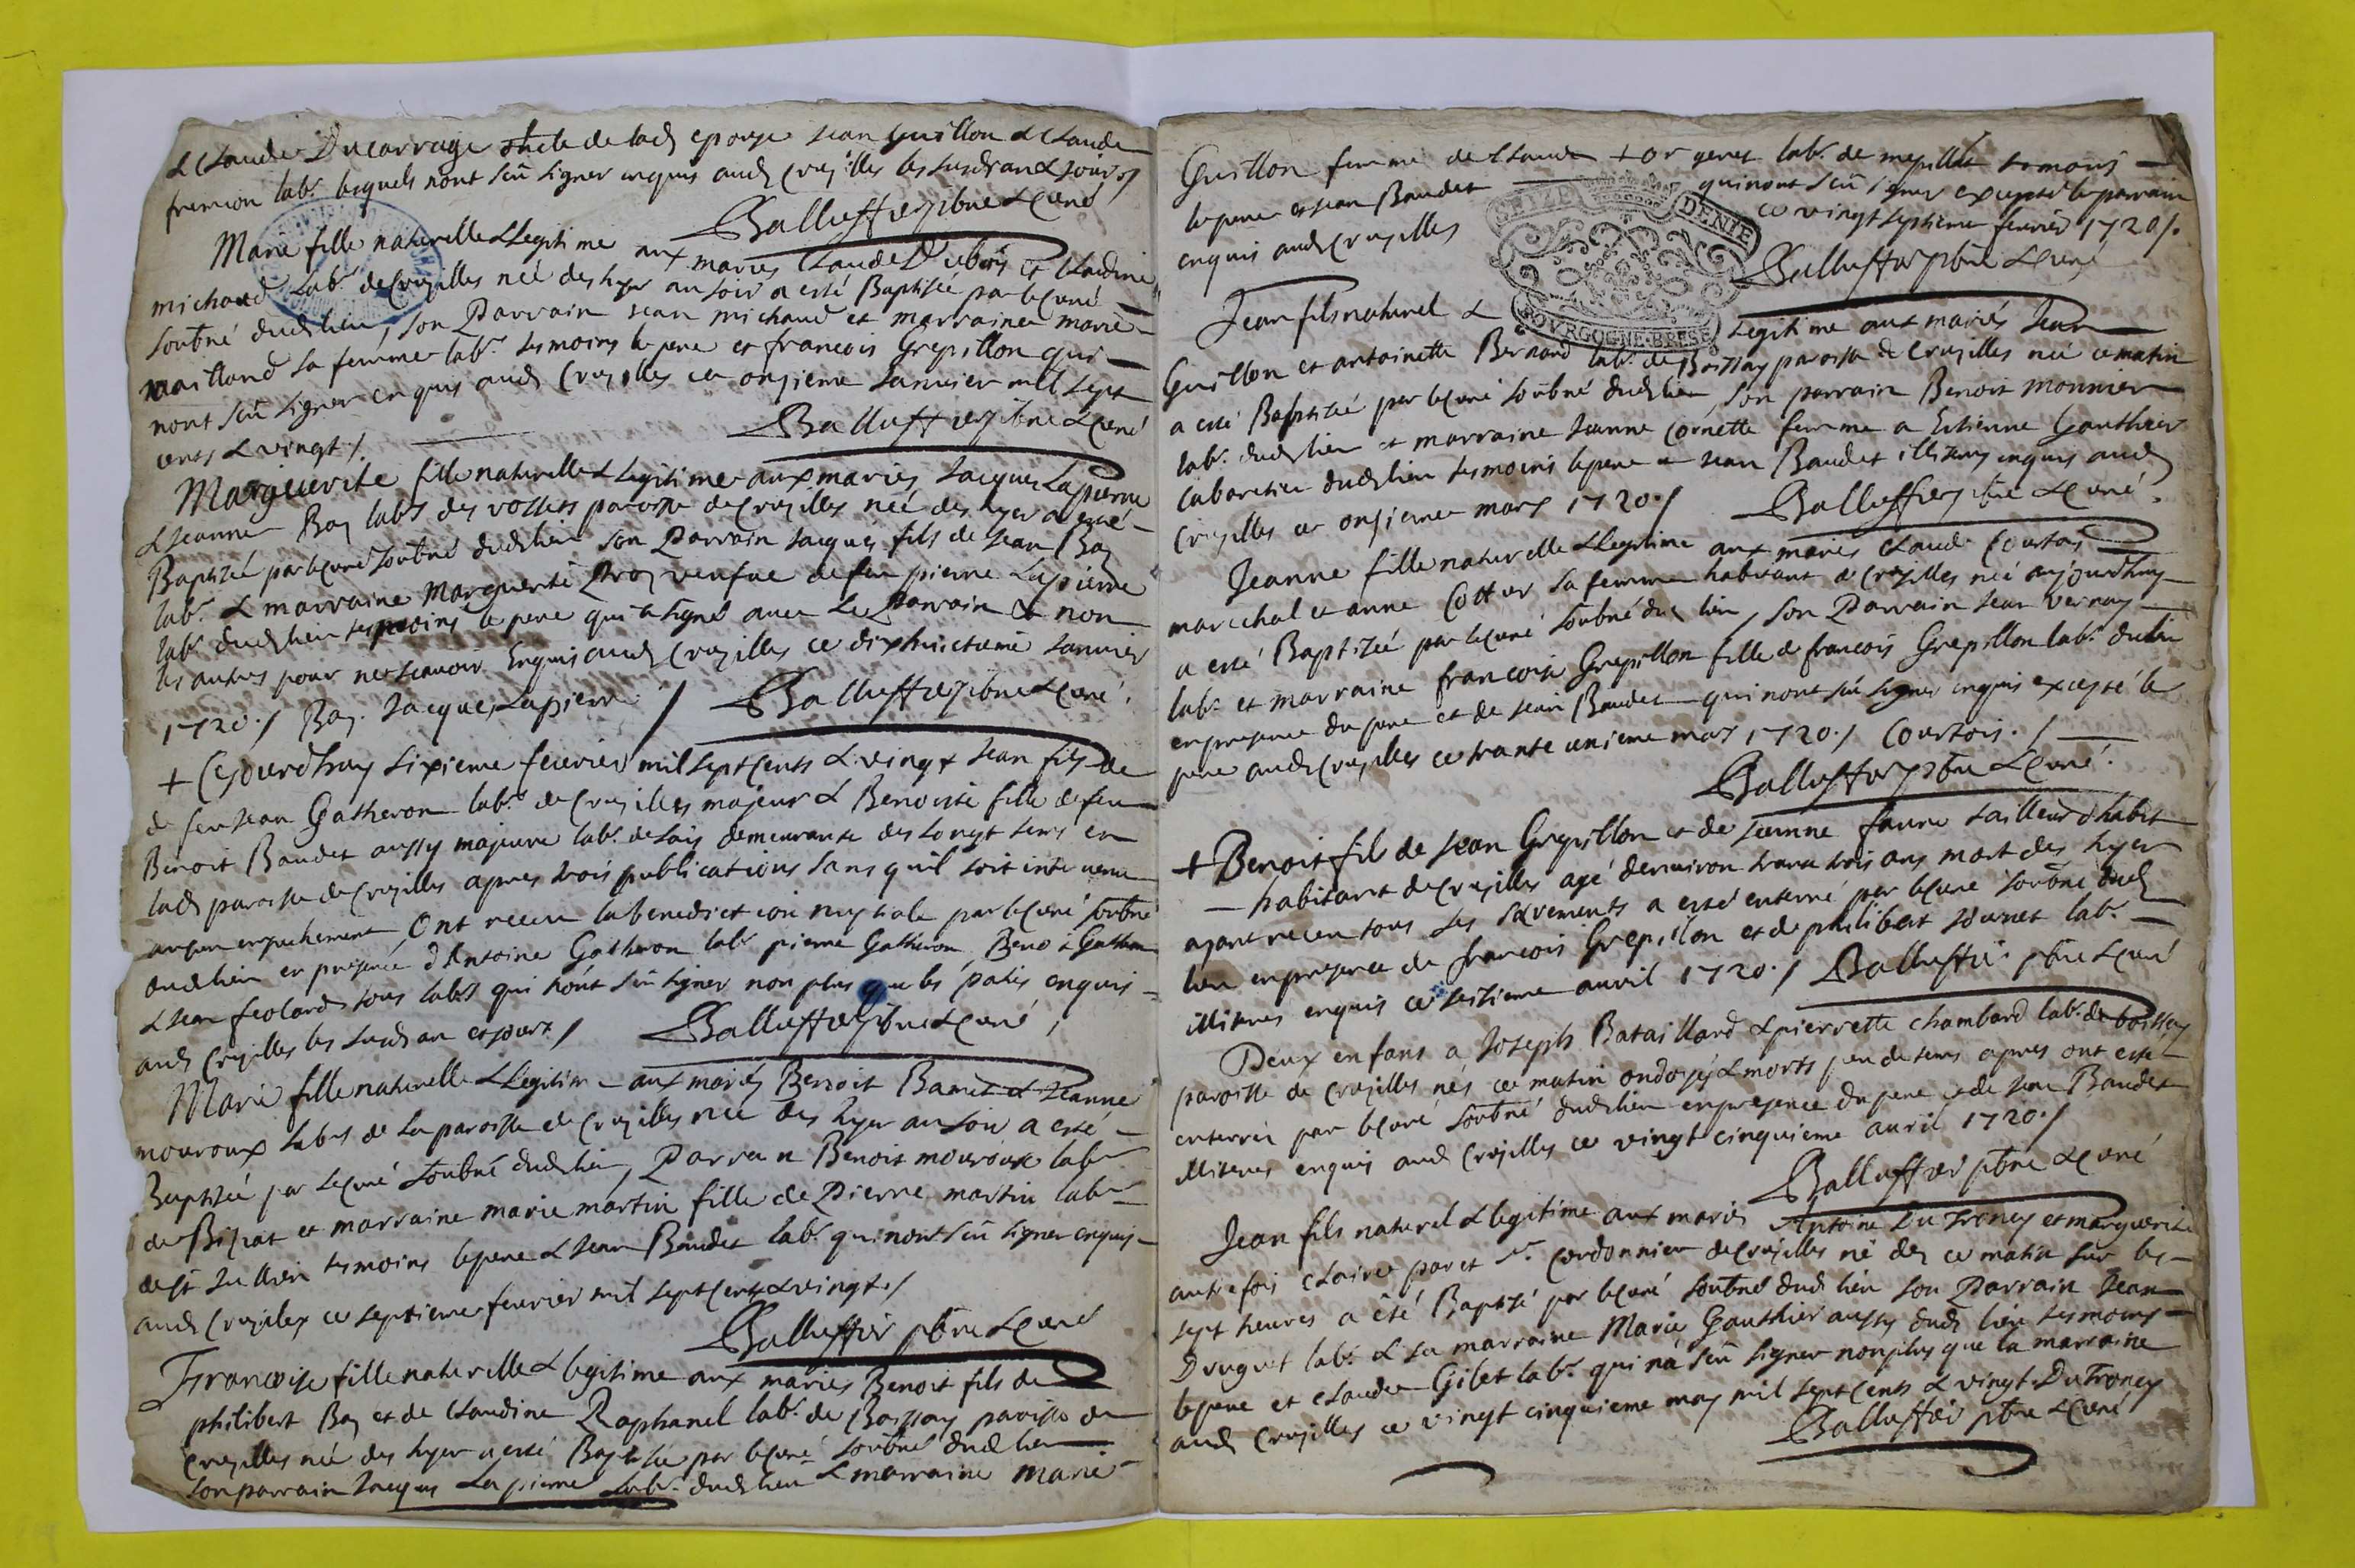 & Claude Ducarrage oncle de lad epouse Jean Guillon & Claude
fremion labr. lesquels nont sceu signer enquis aud Crusilles les susd an & jour ./
Balluffier pbre & curé
Marie fille naturelle & legitime aux mariés Claude Dubois et Claudine
michaud labr. de Crusilles née des hyer au soir a esté Baptisée par le curé
soubné dud lieu, son Parrain jean michaud et marraine marie
maitland sa femme labr. tesmoins le pere et francois Grepillon qui
nont sceu signer enquis aud Crusilles ce onzieme Janvier mil sept
cents & vingt ./
Balluffier pbre & curé
Marguerite fille naturelle & legitime aux mariés Jacques Lapierre
& Jeanne Bay labrs des vossets paroisse de Crusilles née des hyer a esté
Baptisée par le curé soubné dud lieu son Parrain Jacques fils de Jean Bay
labr. & marraine Marguerite Proy veufue de feu pierre Lapierre
labr. dud lieu tesmoins le pere qui a signé avec le Parrain & non
les autres pour ne scauoir Enquis aud Crusilles ce dixhuictieme Janvier
1720 ./ Bay. Jacque Lapierre ./ Balluffier pbre & curé
+ Cejourdhuy sixieme feurier mil sept cents & vingt Jean fils de
de feu Jean Gatheron labr. de Crusilles majeur & Benoite fille de feu
Benoit Baudet aussy majeure labr. de Lais demeurante des longt tems en
lad paroisse de Crusilles apres trois publications sans quil soit interuenu
aucun empechement, Ont receu la benediction nuptiale par le curé soubné
dud lieu en presence d'Antoine Gatheron labr. pierre Gatheron, Benoit Gatheron
& Jean feolard tous labrs qui nont sceu signer non plus que les partis enquis
aud Crusilles les susd an et jour ./ Balluffier pbre & curé
Marie fille naturelle & legitime aux mariés Benoit Barnet & Jeanne
mouroux labrs de la paroisse de Crusilles née des hyer au soir a esté
Baptisée par le curé soubné dud lieu, Parrain Benoit mouroux labr
de Bisiat et marraine marie martin fille de Pierre martin labr
de st Jullien tesmoins le pere & Jean Baudet labr. qui nont sceu signer enquis
aud Crusilles ce septieme feurier mil sept cents & vingt ./
Balluffier pbre & curé
Francoise fille naturelle & legitime aux mariés Benoit fils de
philibert Bay et de Claudine Raphanel labr. de Boissay paroisse de
Crusilles née des hyer a esté Baptisée par le curé soubné dud lieu
son parrain Jacques Lapierre labr. dud lieu & marraine marie
Guillon femme de Claude + or geret labr. de mepillat tesmoins
le pere et Jean Baudet qui nont sceu signer excepté le parrain
enquis aud Crusilles ce vingt septieme feurier 1720 ./
Balluffier pbre & curé
SEIZE DENIE
BOVRGOGNE·BRESE
Jean fils naturel & legitime aux mariés Jean
Guillon et antoinette Bernard labr. de Boissay paroisse de Crusilles né ce matin
a esté Baptisé par le curé soubné dud lieu, son parrain Benoit Monnier
labr. dud lieu et marraine Jeanne Cornette femme a Estienne Gauthier
Cabaretier dud lieu tesmoins le pere et Jean Baudet illiteres enquis aud
Crusilles ce onzieme mars 1720 ./ Balluffier pbre & curé
Jeanne fille naturelle & legitime aux mariés Claude Courtois
marechal et anne Cotter sa femme habitant a Crusilles née aujourdhuy
a esté Baptisée par le curé soubné du lieu, son Parrain Jean vernay
labr. et marraine francoise Grepillon fille de francois Grepillon labr. du lieu
en presence du pere et de Jean Baudet qui nont sceu signer enquis excepté le
pere aud Crusilles ce trante unieme mars 1720 ./ Courtois ./
Balluffier pbre & curé
+ Benoit fils de Jean Grepillon et de Jeanne faure tailleur d'habit
habitant de Crusilles agé denuiron trante trois ans mort des hyer
ayant receu tous les sacrements a esté enterré par le curé soubné dud
lieu en presence de francois Grepillon et de philibert Journet labr.
illiteres enquis ce seizieme auril 1720 ./ Balluffier pbre & curé
Deux enfans a Joseph Bataillard & pierrette chambard labr. de boissay
paroisse de Crusilles nés ce matin ondoyés & morts peu de tems apres ont esté
enterrés par le curé soubné dud lieu en presence du pere et de Jean Baudet
illiteres enquis aud Crusilles ce vingt cinquieme auril 1720 ./
Balluffier pbre & curé
Jean fils naturel & legitime aux mariés Antoine Dutroncy et marguerite
autrefois Claire paret sr. Cordonnier de Crusilles né des ce matin sur les
sept heures a été Baptisé par le curé soubné dud lieu son Parrain Jean
Druguet labr. & sa marraine Marie Gauthier aussy dud lieu tesmoins
le pere et Claude Gibet labr. qui na sceu signer non plus que la marraine
aud Crusilles ce vingt cinquieme may mil sept cents & vingt. Dutroncy
Balluffier pbre & curé